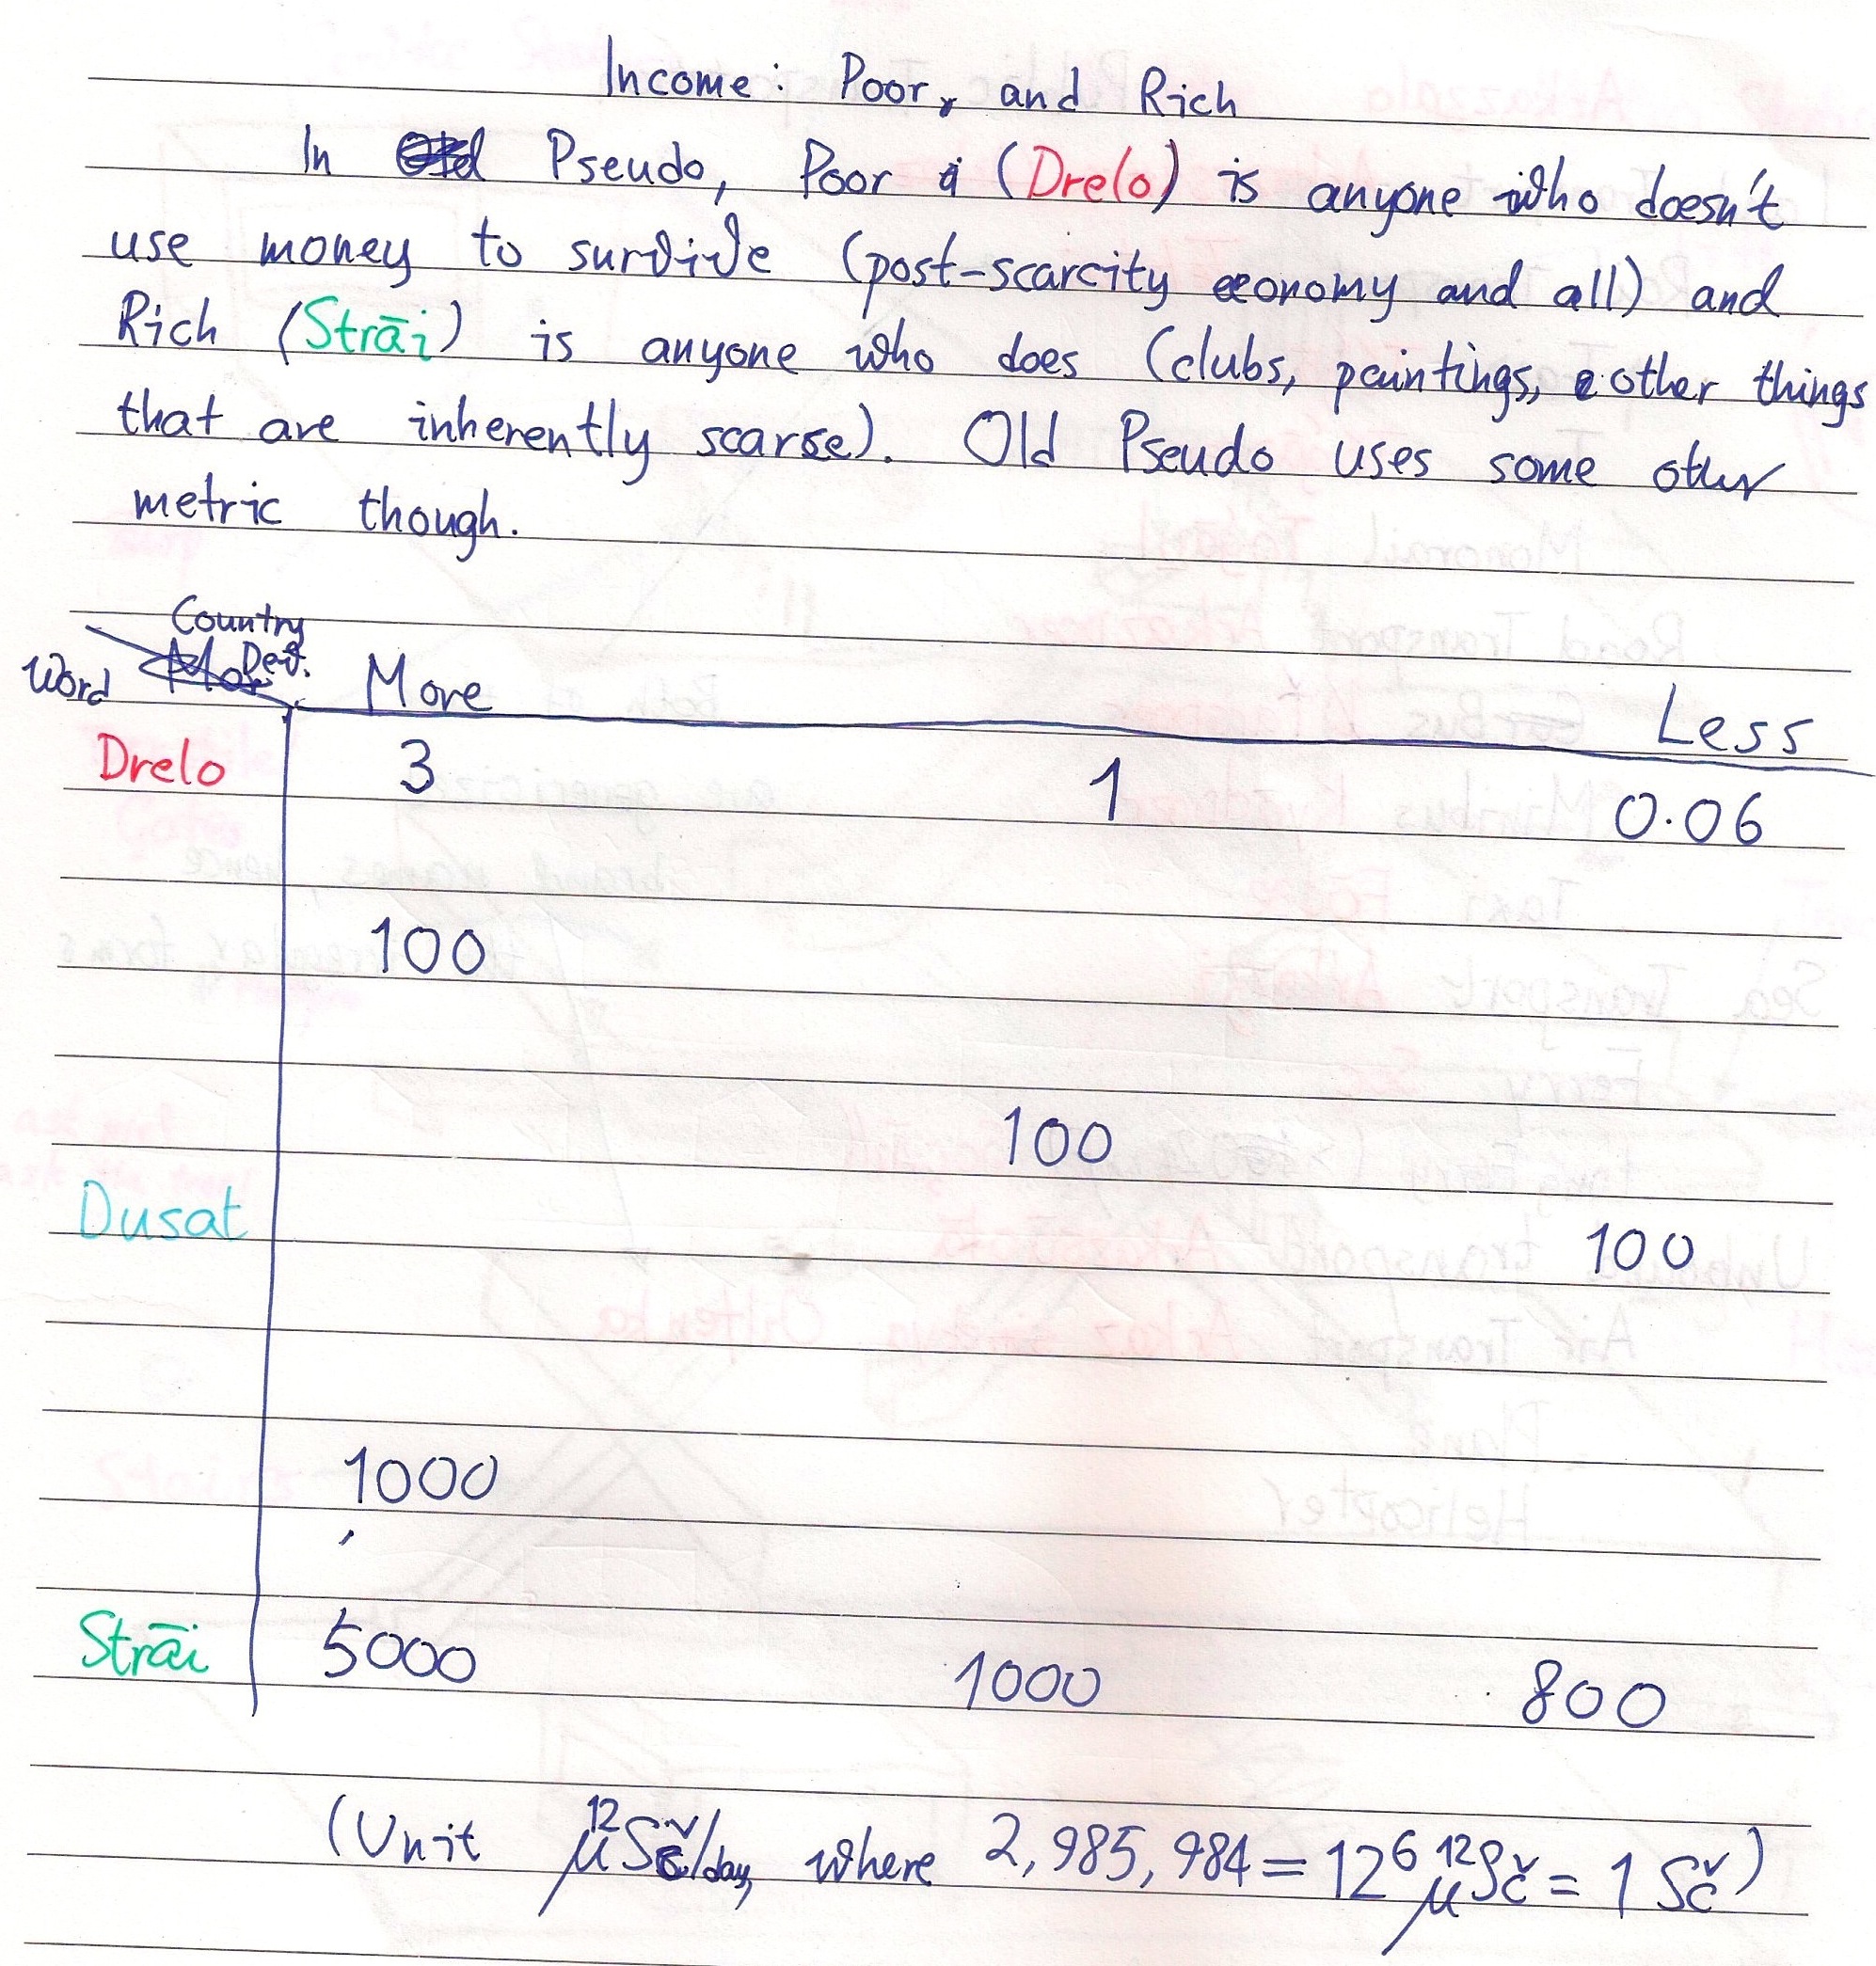 Income: Poor, and Rich
In Pseudo, Poor (Drelo) is anyone who doesn't
use money to survive (post-scarcity economy and all) and
Rich (Strāi) is anyone who does (clubs, paintings, other things
that are inherently scarse). Old Pseudo uses some other
metric though.
Country
Word Dev. More Less
Drelo 3 1 0.06
100
100
Dusat 100
1000
Strāi 5000 1000 800
(Unit µ¹²Sč/day, where 2,985,984 = 12⁶ µ¹²Sč = 1 Sč)